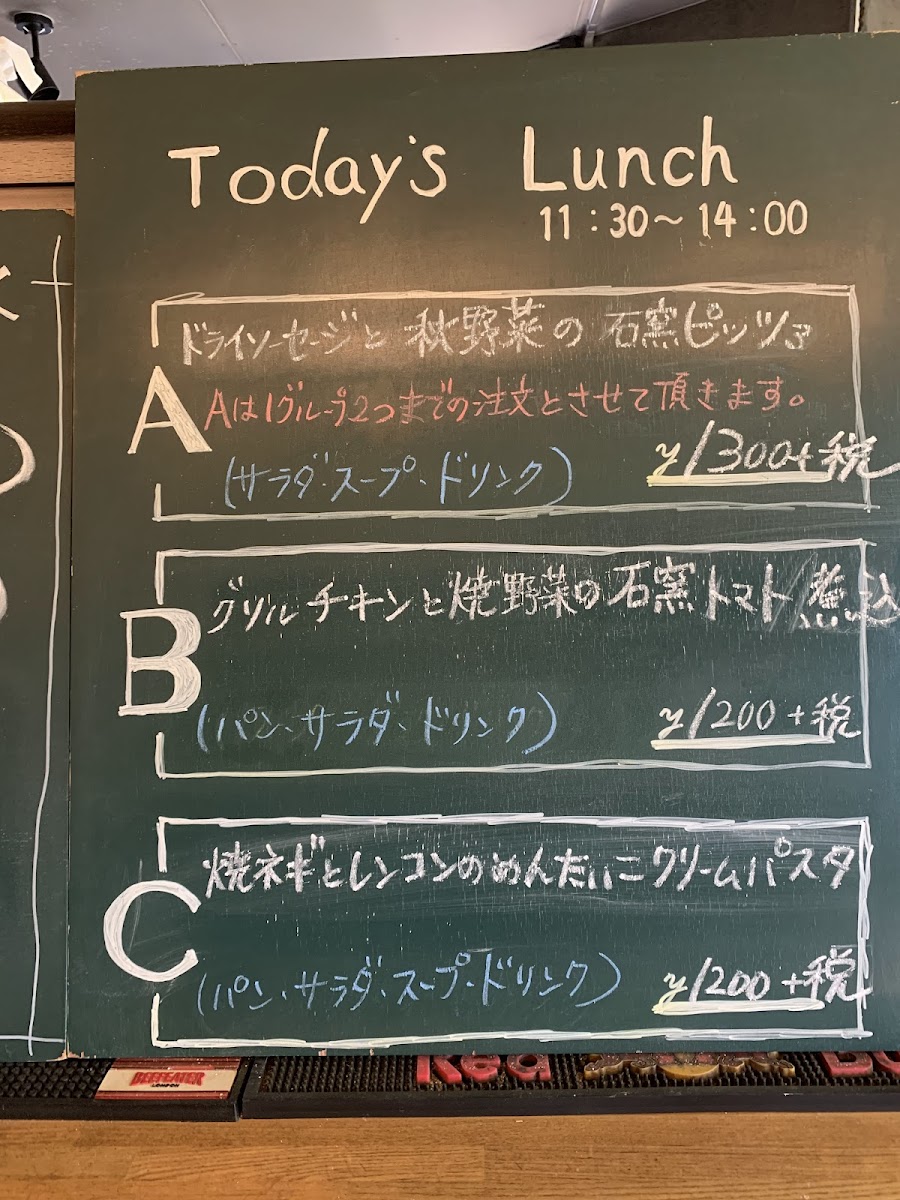 Today's Lunch
11:30～14:00
A
ドライソーセージと秋野菜の石窯ピッツァ
Aは1グループ2つまでの注文とさせて頂きます。
(サラダ・スープ・ドリンク)
¥1300+税
B
グリルチキンと焼野菜の石窯トマト煮込
(パン、サラダ、ドリンク)
¥1200+税
C
焼ネギとレンコンのめんたいこクリームパスタ
(パン、サラダ、スープ・ドリンク)
¥1200+税
BEEFEATER
LONDON
Red